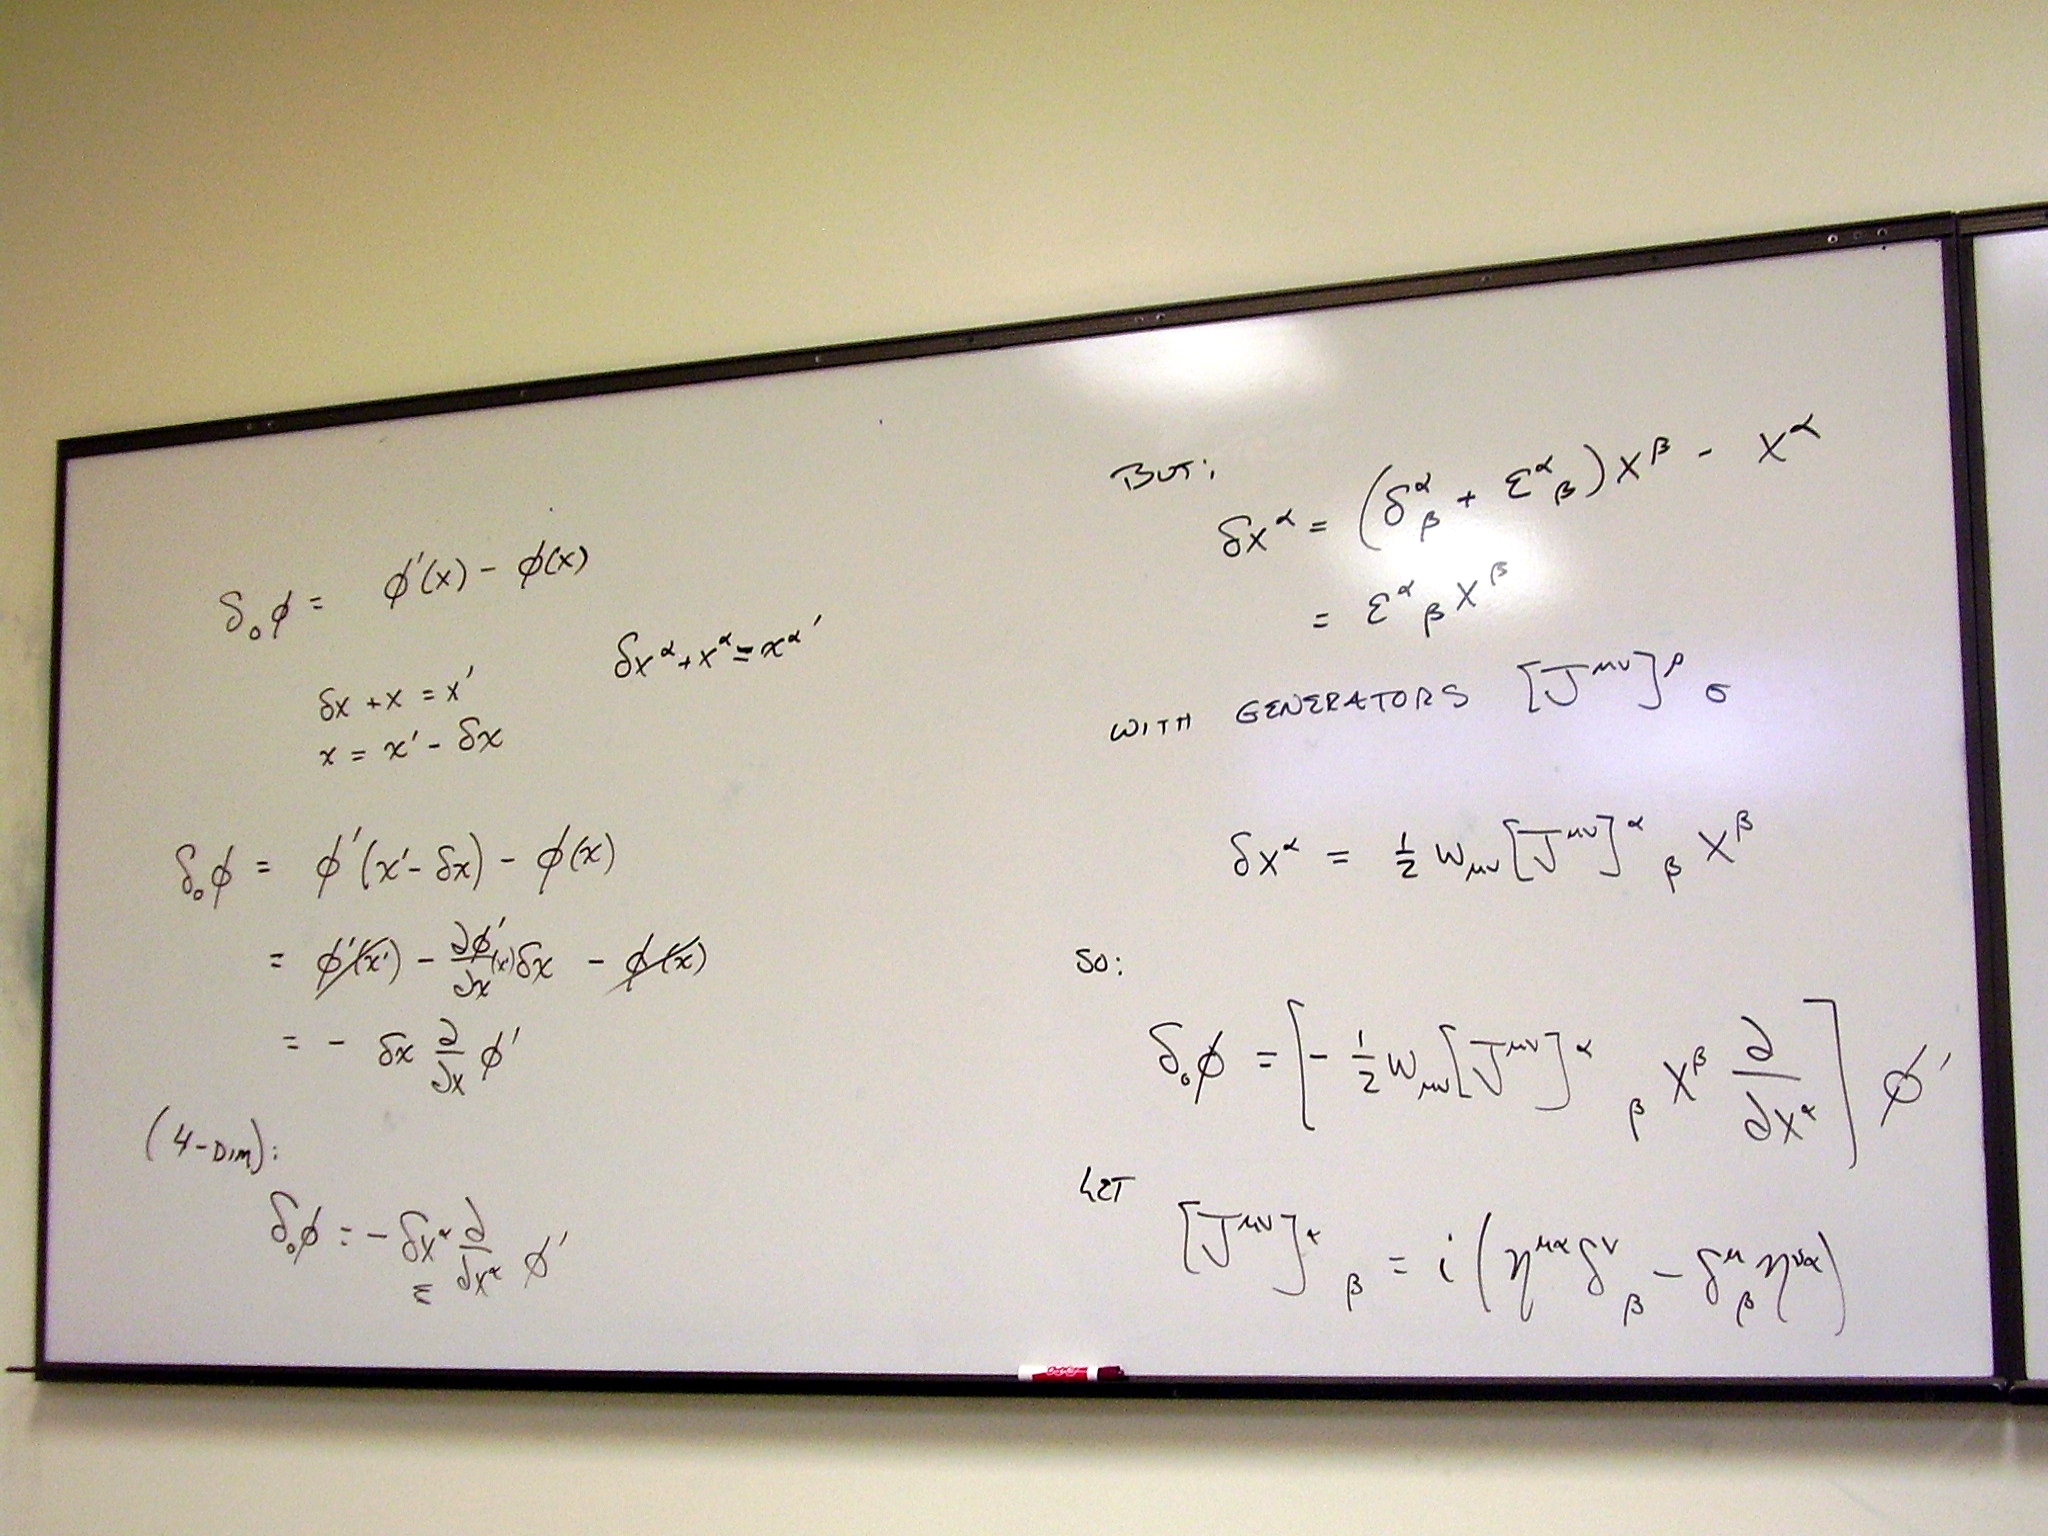 δ₀ϕ = ϕ'(x) - ϕ(x)
δx + x = x'
δx^α + x^α = x^α'
x = x' - δx
δ₀ϕ = ϕ'(x' - δx) - ϕ(x)
= ϕ'(x') - ∂ϕ'/∂x (x') δx - ϕ(x)
= - δx ∂/∂x ϕ'
(4-DIM):
δ₀ϕ = - δx^α ∂/∂x^α ϕ'
BUT:
δx^α = (δ^α_β + ε^α_β) x^β - x^α
= ε^α_β x^β
WITH GENERATORS [J^μν]^ρ_σ
δx^α = ½ ω_μν [J^μν]^α_β x^β
SO:
δ₀ϕ = [- ½ ω_μν [J^μν]^α_β x^β ∂/∂x^α] ϕ'
LET
[J^μν]^α_β = i (η^μα δ^ν_β - δ^μ_β η^να)